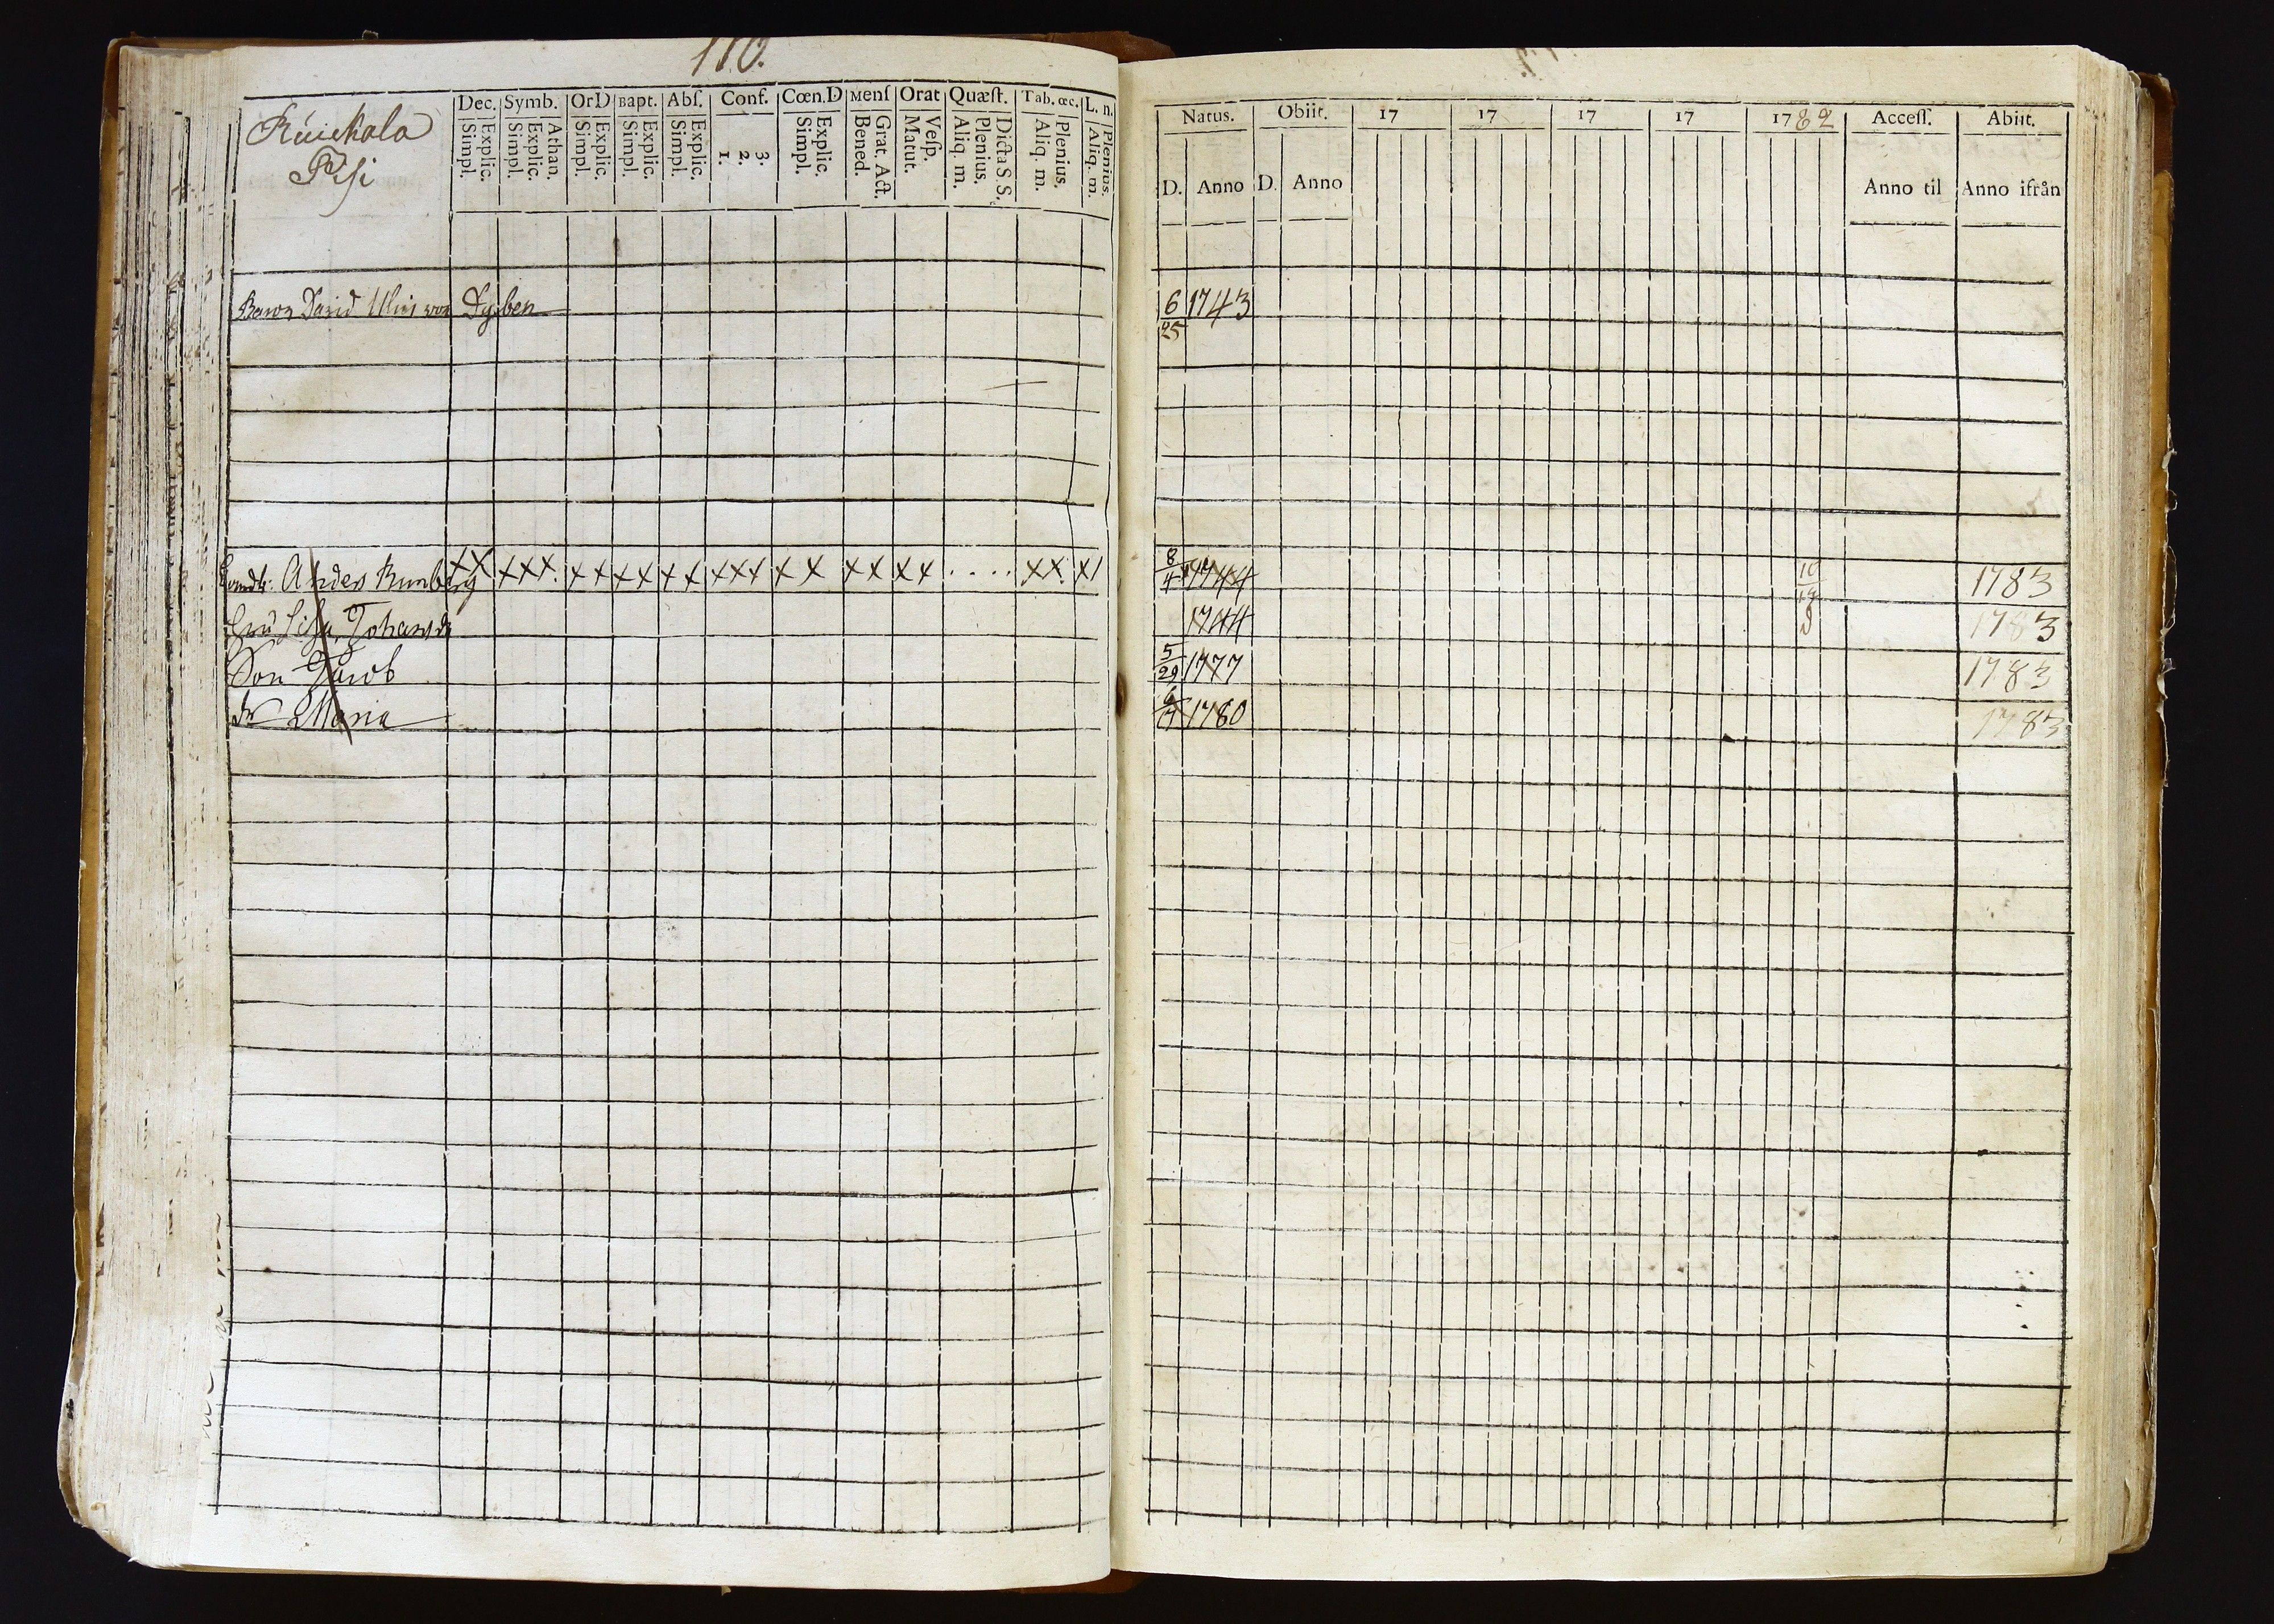 110.
Dec. Symb. OrD Bapt. Abſ. Conf. Cœn.D Menſ Orat Quæſt. Tab. œc. L. n.
Simpl. Explic. Simpl. Explic. Athan. Simpl. Explic. Simpl. Explic. Simpl. Explic. 1. 2. 3. Simpl. Explic. Bened. Grat. Act. Matut. Veſp. Aliq. m. Plenius. Dicta S. S. Aliq. m. Plenius. Aliq. m. Plenius.
Natus. Obiit. 17 17 17 17 1782 Acceſſ. Abiit.
D. Anno D. Anno Anno til Anno ifrån
Baron David von Dyben 6/25 1743
Anders Rumberg XX XXX. XX XX XX XXX XX XX XX .... XX. XI 8/4 1744 1783
Lisa Johansdr 1744 1783
Son Jacob 5/29 1777 1783
dr Maria 1780 1783